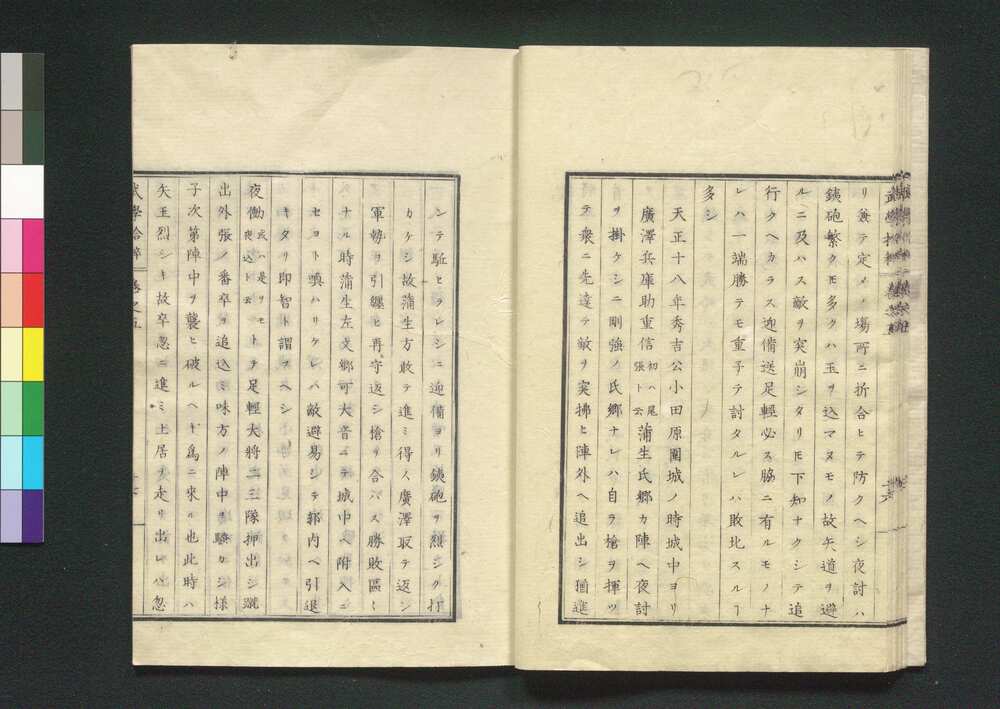 リ兼テ定メノ場所ニ折合ヒテ防クヘシ夜討ハ
銕砲繁クモ多クハ玉ヲ込マヌモノ故矢道ヲ避
ルニ及ハス敵ヲ突崩シタリ𪜈下知ナクシテ追
行クヘカラス迎備送足輕必ス脇ニ有ルモノナ
レハ一端勝テモ重子テ討タルレハ敗北スルヿ
多シ
天正十八年秀吉公小田原圍城ノ時城中ヨリ
廣澤兵庫助重信初ハ尾張ト云蒲生氏郷カ陣ヘ夜討
ヲ掛ケシニ剛強ノ氏郷ナレハ自ラ槍ヲ揮ツ
テ衆ニ先達テ敵ヲ突拂ヒ陣外ヘ追出シ猶進
ンテ駈ヒラレシニ迎備ヨリ銕砲ヲ烈シク打
カケシ故蒲生方敢テ進ミ得ス廣澤取テ返シ
軍勢ヲ引纏ヒ再守返シ槍ヲ合ハス勝敗區〻
ナル時蒲生左文郷可大音ニテ城中ヘ附入ニ
セヨト喚ハリケレハ敵避易シテ郭内ヘ引退
キタリ即智ト謂フヘシ
夜働或ハ是ヲ夜込ト云モトテ足輕大將二三隊押出シ號
出外張ノ番卒ヲ追込ミ味方ノ陣中ヲ騒カシ様
子次第陣中ヲ襲ヒ破ルヘキ爲ニ來ル也此時ハ
矢玉烈シキ故卒忽ニ進ミ土居ナ走リ出レハ忽
武學拾粹 卷之五